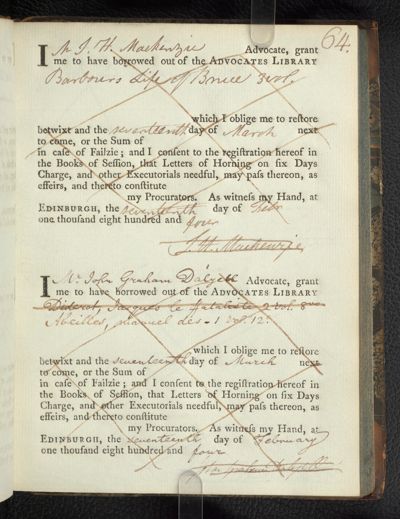 64.
I M J. H. Mackenzie Advocate, grant
me to have borrowed out of the ADVOCATES LIBRARY
Barbours Life of Bruce 3 vol.
which I oblige me to reſtore
betwixt and the seventeenth day of March next
to come, or the Sum of
in caſe of Failzie; and I conſent to the regiſtration hereof in
the Books of Seſſion, that Letters of Horning on ſix Days
Charge, and other Executorials needful, may paſs thereon, as
effeirs, and thereto conſtitute
my Procurators. As witneſs my Hand, at
EDINBURGH, the seventeenth day of Febr
one thouſand eight hundred and four
J. H. Mackenzie
I Mr. John Graham Dalyell Advocate, grant
me to have borrowed out of the ADVOCATES LIBRARY
Diderot, Jacques le fataliste 2 vol. 8vo
Abeilles, manuel des - 1 vol. 12.
which I oblige me to reſtore
betwixt and the seventeenth day of March next
to come, or the Sum of
in caſe of Failzie; and I conſent to the regiſtration hereof in
the Books of Seſſion, that Letters of Horning on ſix Days
Charge, and other Executorials needful, may paſs thereon, as
effeirs, and thereto conſtitute
my Procurators. As witneſs my Hand, at
EDINBURGH, the seventeenth day of February
one thouſand eight hundred and four
Jn Graham Dalyell